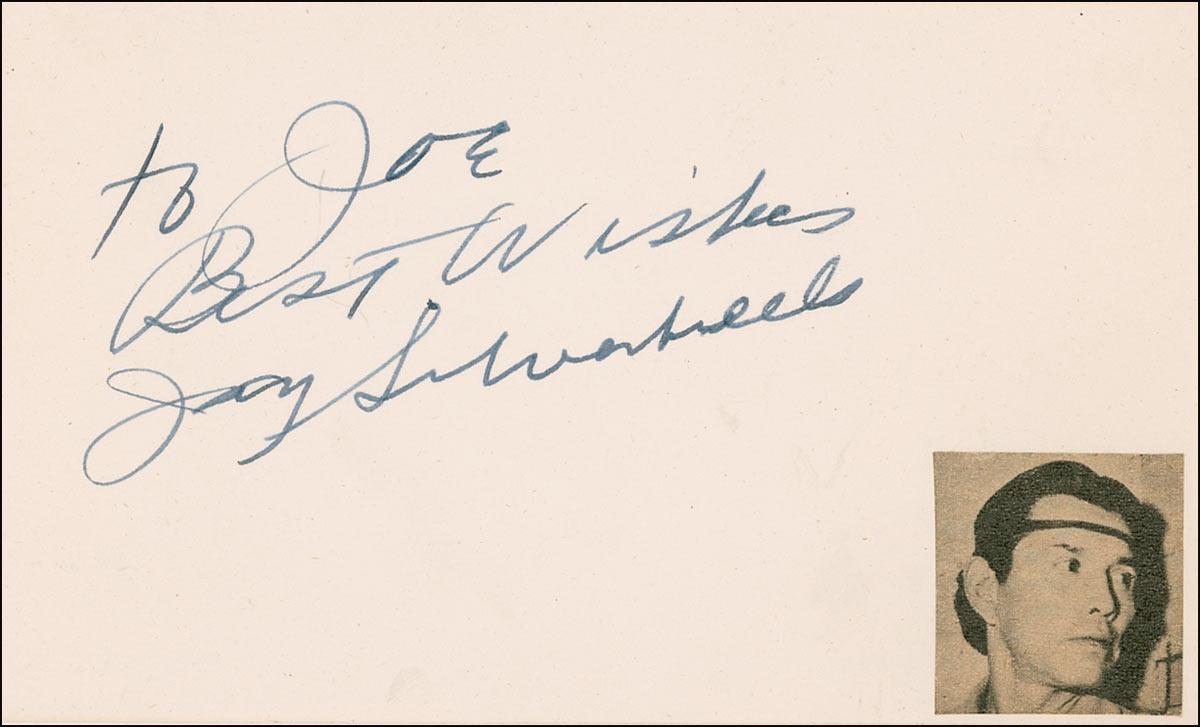 to Joe
Best Wishes
Jay Silverheels